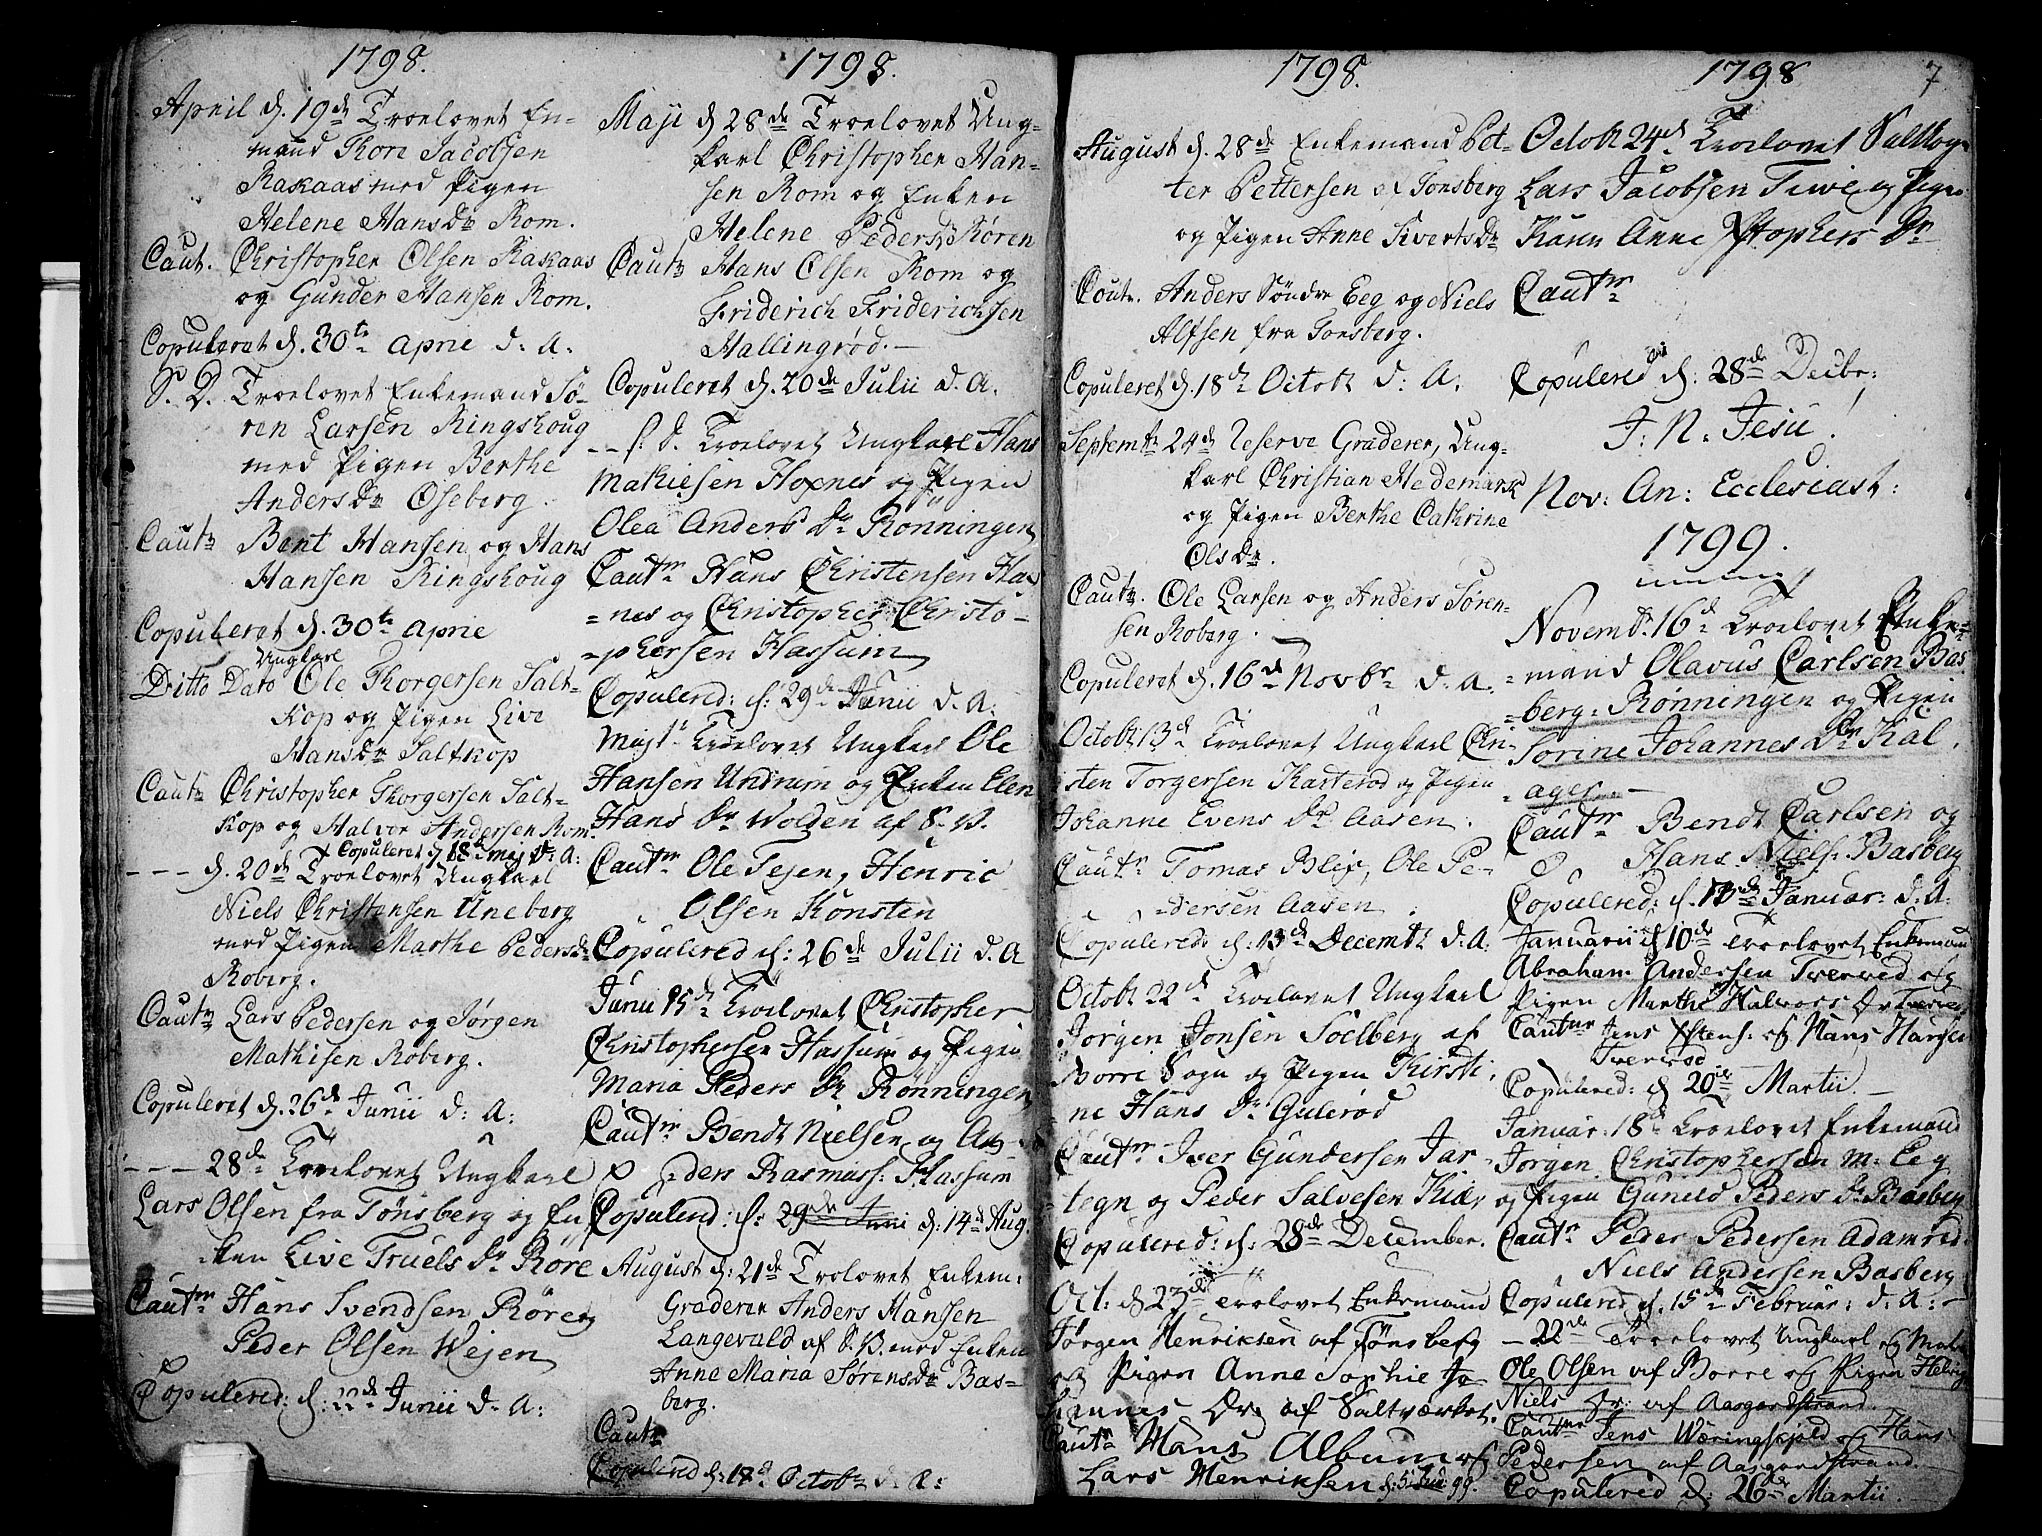 1798.
April d. 19de Troelovet En-
mand Tore Jacobsen
Rakaas med Pigen
Helene HansDr Rom.
Caut. Christopher Olsen Rakaas
og Gunder Hansen Rom.
Copuleret d. 30te April d: A:
S. D. Troelovet Enkemand Sø-
ren Larsen Ringshoug
med Pigen Berthe
AndersDr Oseberg.
Cautr Bent Hansen og Hans
Hansen Ringshoug
Copuleret d. 30te April
Ungkarl
Ditto Dato Ole Thorgersen Salt-
kop og Pigen Live
HansDr Saltkop
Cautr Christopher Thorgersen Salt-
kop og Halvor Andersen Rom.
Copuleret d 18de Maj d: A:
--- d. 20de Troelovet Ungkarl
Niels Christensen Uneberg
med Pigen Marthe PedersDr
Roberg.
Cautr Lars Pedersen og Jørgen
Mathisen Roberg.
Copuleret d. 26de Junii d: A:
--- 28de Troelovet Ungkarl
Lars Olsen fra Tønsberg og En-
ken Live Truels Dr Røre
Cautnr Hans Svendsen Røre og
Peder Olsen Wejen
Copulered: d: 22de Junii d: A:
1798.
Maji d 28de Troelovet Ung-
karl Christopher Han-
sen Rom og Enken
Helene PedersDr Røren
Cautr Hans Olsen Rom og
Friderich Friderichsen
Hallingrød.-
Copuleret d. 20de Julii d. A.
-- s. d. Troelovet Ungkarl Hans
Mathiesen Hoxnes og Pigen
Olea Anders Dr Rønningen
Cautnr Hans Christensen Ha-
=nes og Christopher Christo-
=phersen Hassum
Copulered: d: 29de Junii d. A:
Troelovet Ungkarl Ole
Hansen Undrum og Enken Elen
Hans Dr Wolden af S. V.
Cautnr Ole Tejen, Henric
Olsen Konsten
Copulered d: 26de Julii d. A
Junii 15de Troelovet Christopher
Christophersen Hassum og Pigen
Maria Peders Dr Rønningen
Cautnr Bendt Nielsen og An-
ders Rasmuss: Hassum
Copulered: d: 29de Juni d: 14de Aug.
August d: 21de Trolovet Enkem:
Graderer Anders Hansen
Langevald af S. V. med Enken
Anne Maria SørensDr Bas-
berg.
Cautr
Copulered d: 18d October d: A:
1798.
August d. 28de Enkemand Pet-
ter Pettersen af Tonsberg
og Pigen Anne SivertsDr
Coutr. Anders Søndre Eeg og Niels
Alfsen fra Tonsberg.
Copuleret d. 18de Octobr d: A:
Septembr 24de Reserve Graderer, Ung-
karl Christian Hedemark
og Pigen Berthe Cathrine
OlsDr.
Cautr. Ole Larsen og Anders Søren-
sen Roberg.
Copuleret d. 16de Novbr d. A.
Octobr 13d Troelovet Ungkarl Chri-
sten Torgersen Karterod og Pigen
Johanne Evens Dr Aasen.
Cautr Tomas Blix, Ole Pe-
=dersen Aasen
Copulered: d: 13de Decembr d. A:
Octobr 22d Troelovet Ungkarl
Jørgen Jonsen Soelberg af
Borre Sogn og Pigen Kirsti-
ne Hans Dr Gulerod
Cautnr Iver Gundersen Jar-
tegn og Peder Salvesen
Copulered: d: 28de December.
Oct: d 23de Trolovet Enkemand
Jørgen Henriksen af Tønsberg
og Pigen Anne Sophie Jo-
hannes Dr af Saltværket.
Cautr Hans Album og
Lars Henriksen d: 5 99.
1798 7
Octobr 24d Troelovet Saltkog-
Lars Jacobsen Tiwe og Pigen
Karen Anne Xstophers Dr
Cautnr
Copulered d: 28de Decbr:
J: N: Jesu.
Nov: An: Ecclesiast:
1799.
Novembr. 16d Troelovet Enke-
=mand Olavus Carlsen Bas
=berg= Rønningen og Pigen
Sorine Johannes Dr Kal
=ager.-
Cautnr Bendt Carlsen og
Hans Niels: Basberg
Copulered: d. 13de Januar: d. A:
Januarii d 10de Troelovet Enkemand
Abraham Andersen Tvered og
Pigen Marthe Halvors Dr
Cautnr Jens Xstens: og Hans Hansen
Tvererod
Copulered: d 20de Martii.-
Januar: 18d Troelovet Enkemand
Jørgen Christophersen M: Eeg
og Pigen Gunild Peders Dr Basberg
Cautr Peder Pedersen Adamrød
Niels Andersen Basberg
Copulered d. 15de Februar: d: A:-
- 22de Troelovet Ungkarl og
Ole Olsen af Borre og Pigen Helvig
Niels Dr: af Aasgaardstrand.
Cautnr Jens Wæringskjold og Hans
Pedersen af Aasgaardstrand.
Copulered d: 26de Martii.-